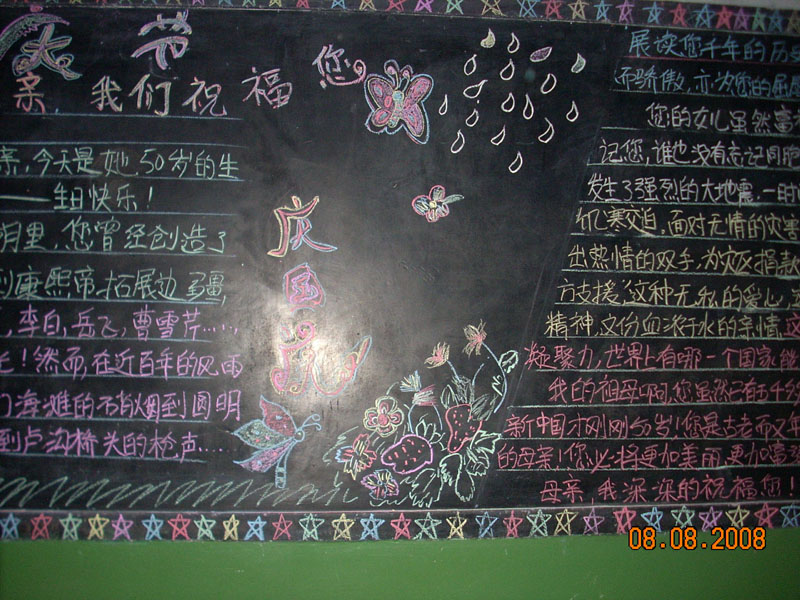 庆节
亲 我们祝福您
亲,今天是她50岁的生
——生日快乐!
月里,您曾经创造了
到康熙帝,拓展边疆,
,李白,岳飞,曹雪芹……
!然而,在近百年的风雨
门海滩的不断烟到圆明
到卢沟桥头的枪声……
庆国
展读您千年的历史
不骄傲,亦为您的屈
您的女儿虽然
记您,谁也没有忘记
发生了强烈的大地震,一时
饥寒交迫,面对无情的灾害
出热情的双手,为灾区捐款
方支援,这种无私的爱心,
精神,这份血浓于水的亲情,这
凝聚力,世界上有哪一个国家能
我的祖母啊,您虽然已有五千
新中国才刚刚50岁!您是古老而又年
的母亲!您必将更加美丽,更加富强
母亲,我深深的祝福您!
08.08.2008